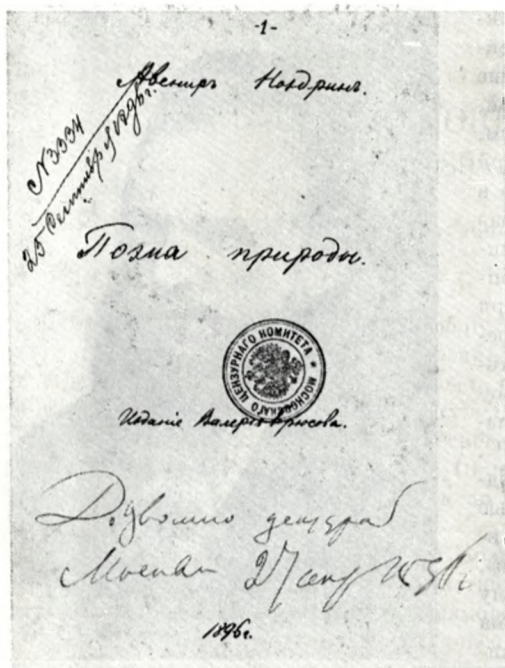 -1-
Авенир Ноздрин.
N 3334
25 Сентября 1896 г.
Поэма природы.
МОСКОВСКАГО ЦЕНЗУРНАГО КОМИТЕТА
Издание Валерия Брюсова.
Дозволено цензурой
Москва 27 сент 1896 г
1896 г.